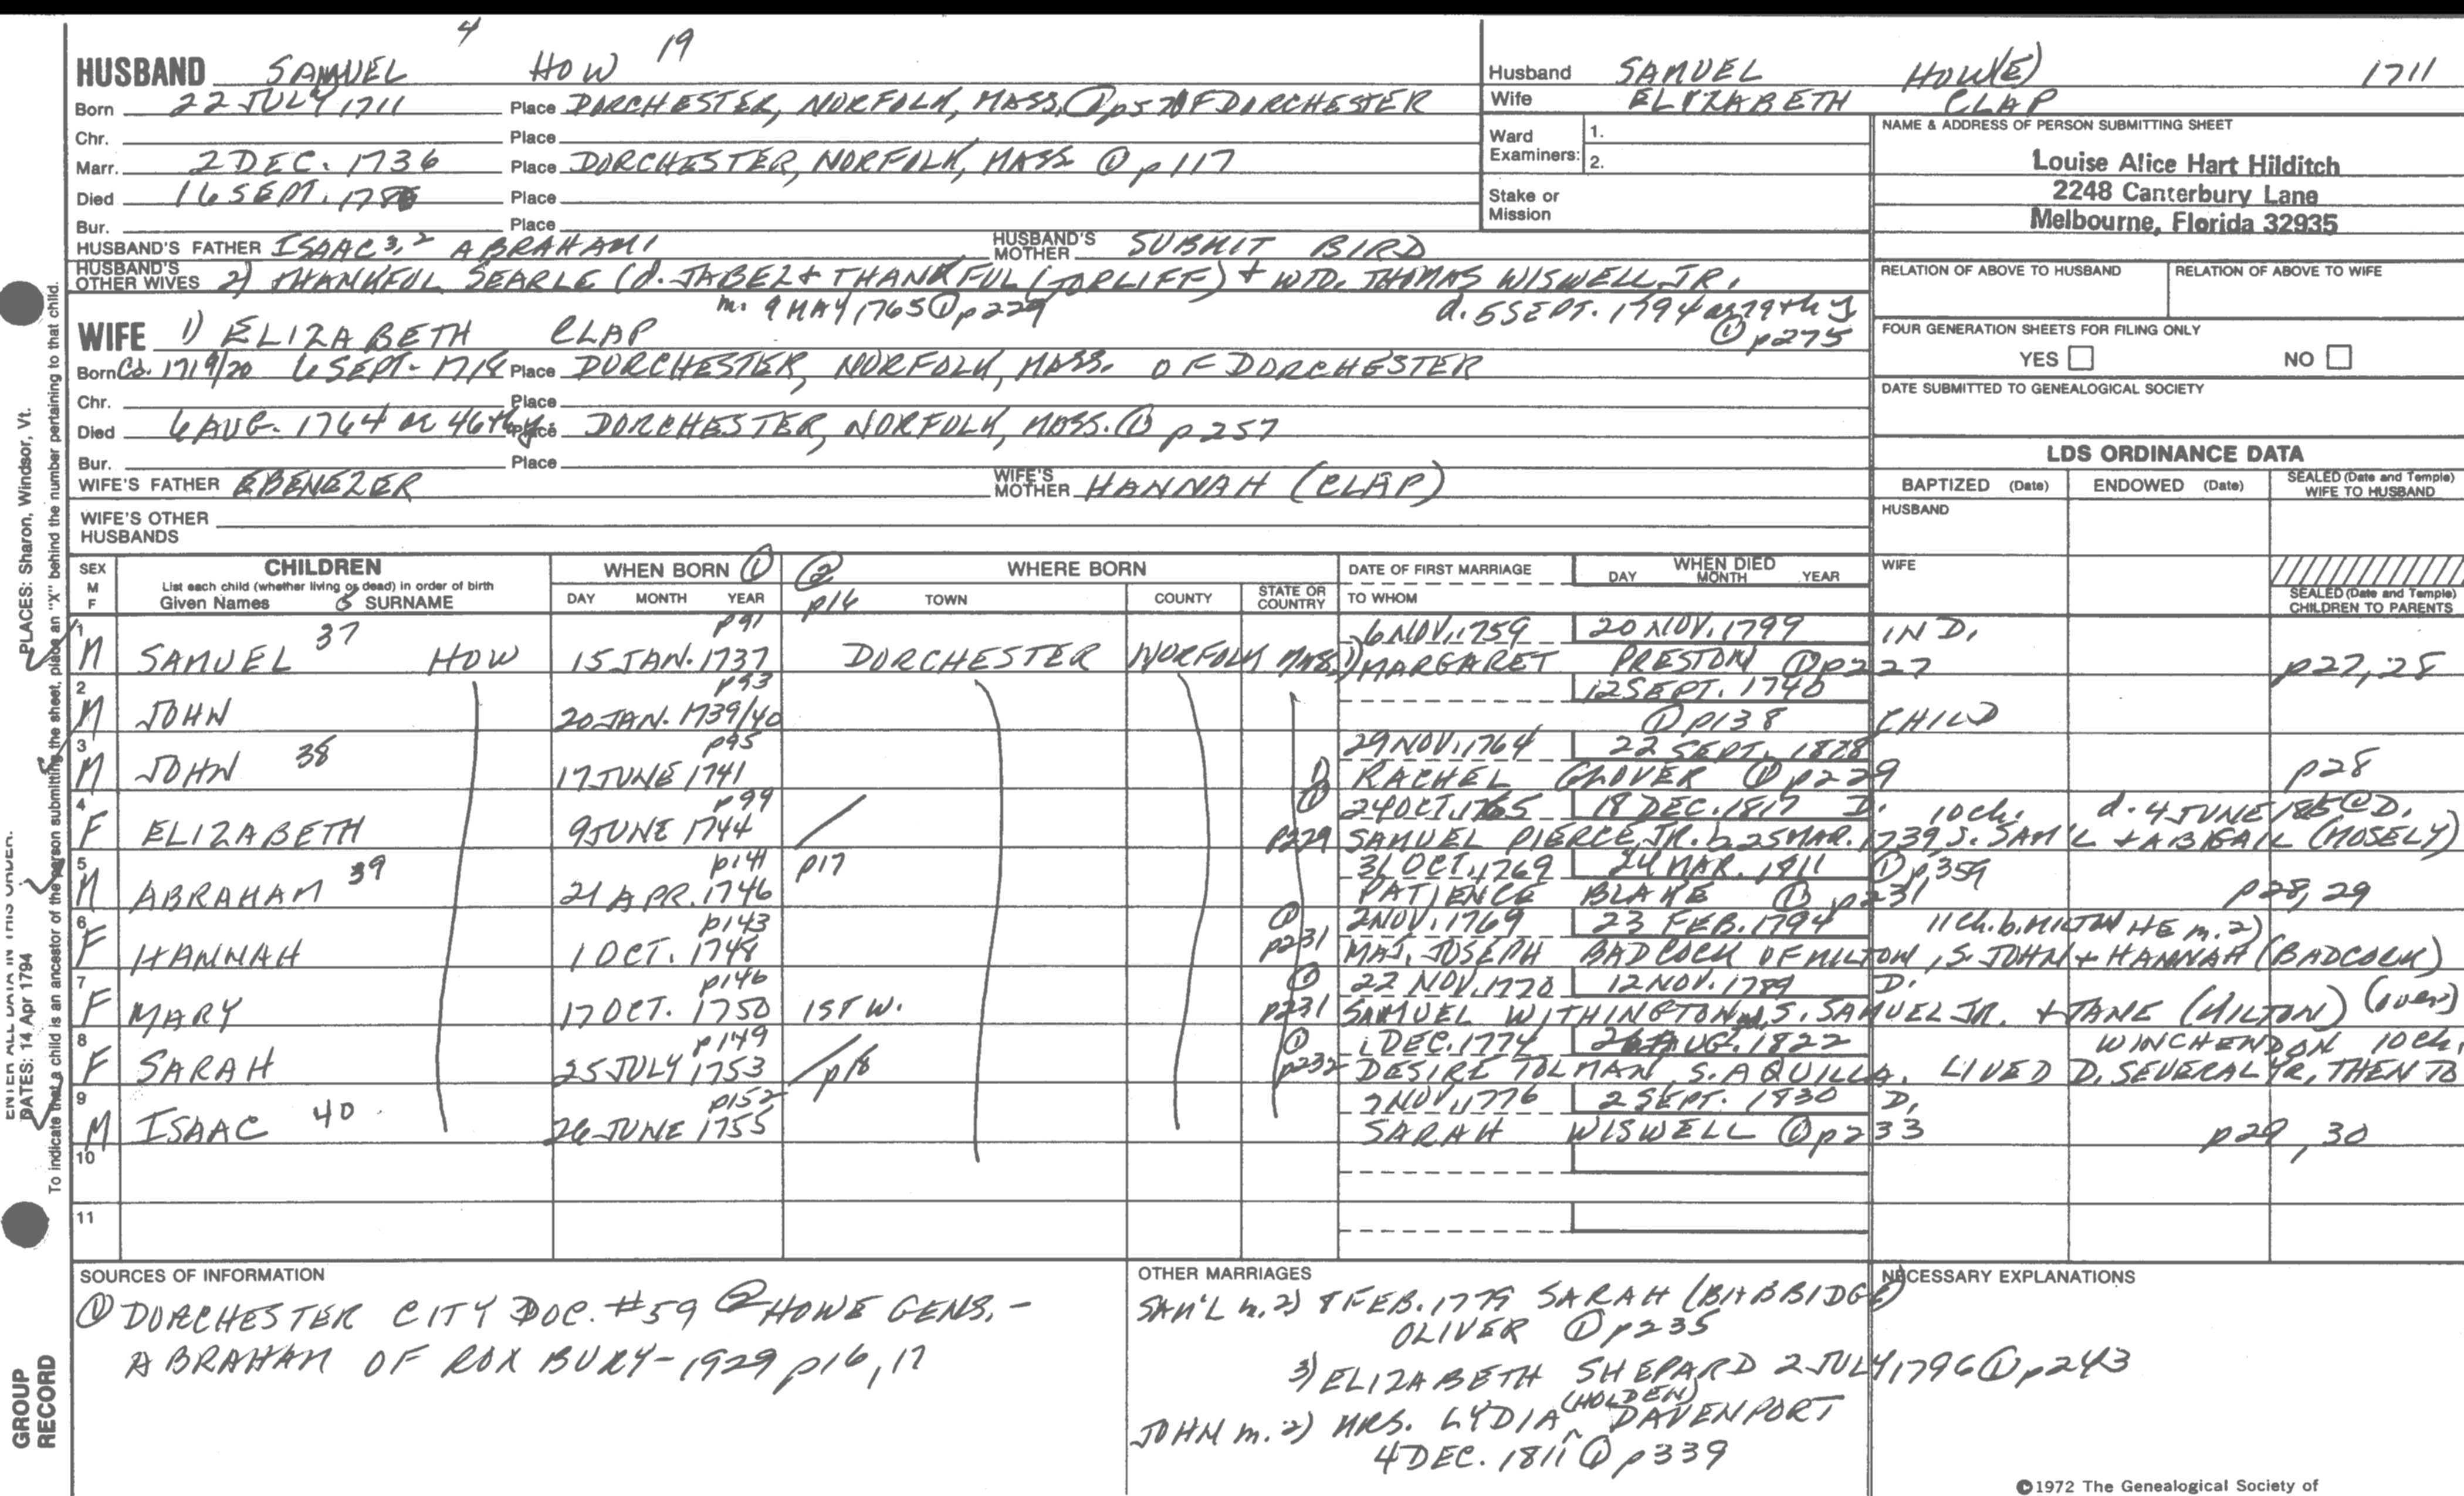 4 19
HUSBAND SAMUEL HOW
Born 22 JULY 1711 Place DORCHESTER, NORFOLK, MASS. ① p57 OF DORCHESTER
Chr. Place
Marr. 2 DEC. 1736 Place DORCHESTER, NORFOLK, MASS ① p117
Died 16 SEPT. Place
Bur. Place
HUSBAND'S FATHER ISAAC 3, 2 ABRAHAM 1 HUSBAND'S MOTHER SUBMIT BIRD
HUSBAND'S OTHER WIVES 2) THANKFUL SEARLE (d. JABEZ + THANKFUL (TOPLIFF) + WID. THOMAS WISWELL JR.
m. 9 MAY 1765 ① p229 d. 5 SEPT. 1794 ae 79th y
① p275
WIFE 1) ELIZABETH CLAP
Born Ca. 1719/20 6 SEPT. Place DORCHESTER, NORFOLK, MASS. OF DORCHESTER
Chr. Place
Died 6 AUG. 1764 ae 46th y Place DORCHESTER, NORFOLK, MASS. ① p257
Bur. Place
WIFE'S FATHER EBENEZER WIFE'S MOTHER HANNAH (CLAP)
WIFE'S OTHER HUSBANDS
Husband SAMUEL HOW(E) 1711
Wife ELIZABETH CLAP
Ward Examiners: 1.
2.
Stake or Mission
NAME & ADDRESS OF PERSON SUBMITTING SHEET
Louise Alice Hart Hilditch
2248 Canterbury Lane
Melbourne, Florida 32935
RELATION OF ABOVE TO HUSBAND RELATION OF ABOVE TO WIFE
FOUR GENERATION SHEETS FOR FILING ONLY
YES NO
DATE SUBMITTED TO GENEALOGICAL SOCIETY
LDS ORDINANCE DATA
BAPTIZED (Date) ENDOWED (Date) SEALED (Date and Temple) WIFE TO HUSBAND
HUSBAND
WIFE
SEALED (Date and Temple) CHILDREN TO PARENTS
SEX M F CHILDREN WHEN BORN ① ② WHERE BORN DATE OF FIRST MARRIAGE WHEN DIED
List each child (whether living or dead) in order of birth
Given Names 5 SURNAME DAY MONTH YEAR p16 TOWN COUNTY STATE OR COUNTRY TO WHOM DAY MONTH YEAR
1 37 p91 6 NOV. 1759 20 NOV. 1799 IND.
M SAMUEL HOW 15 JAN. 1737 DORCHESTER NORFOLK MASS. 1) MARGARET PRESTON ① p227 p27, 28
2 p93 12 SEPT. 1740
M JOHN 20 JAN. 1739/40 ① p138 CHILD
3 38 p95 29 NOV. 1764 22 SEPT. 1828
M JOHN 17 JUNE 1741 1) RACHEL GLOVER ① p229 p28
4 p99 ① 24 OCT. 1765 18 DEC. 1817 D. 10 ch. d. 4 JUNE D.
F ELIZABETH 9 JUNE 1744 p229 SAMUEL PIERCE, JR. b. 25 MAR. 1739 S. SAM'L + ABIGAIL (MOSELY)
5 39 p141 p17 31 OCT. 1769 24 MAR. 1811 ① p359
M ABRAHAM 21 APR. 1746 PATIENCE BLAKE ① p231 p28, 29
6 p143 ① 2 NOV. 1769 23 FEB. 1794 11 ch. b. MILTON HE m. 2)
F HANNAH 1 OCT. 1748 p231 MAJ. JOSEPH BADCOCK OF MILTON, S. JOHN + HANNAH (BADCOCK)
7 p146 ① 22 NOV. 1770 12 NOV. 1789 D.
F MARY 17 OCT. 1750 1ST W. p231 SAMUEL WITHINGTON, S. SAMUEL JR. + JANE (MILTON) (over)
8 p149 ① 1 DEC. 1774 26 AUG. 1822 WINCHENDON 10 ch.
F SARAH 25 JULY 1753 p18 p232 DESIRE TOLMAN, S. AQUILLA. LIVED D. SEVERAL YR, THEN TO
9 40 p152 7 NOV. 1776 2 SEPT. 1830 D.
M ISAAC 26 JUNE 1755 SARAH WISWELL ① p233 p29, 30
10
11
SOURCES OF INFORMATION
① DORCHESTER CITY DOC. #59 ② HOWE GENS. -
ABRAHAM OF ROXBURY - 1929 p16, 17
OTHER MARRIAGES
SAM'L m. 2) 8 FEB. 1779 SARAH (BABBIDGE)
OLIVER ① p235
3) ELIZABETH SHEPARD 2 JULY 1796 ① p243
JOHN m. 2) MRS. LYDIA (HOLDEN) DAVENPORT
4 DEC. 1811 ① p339
NECESSARY EXPLANATIONS
©1972 The Genealogical Society of
PLACES: Sharon, Windsor, Vt.
To indicate that a child is an ancestor of the person submitting the sheet, place an "X" behind the number pertaining to that child.
ENTER ALL DATA IN THIS ORDER:
DATES: 14 Apr 1794
GROUP
RECORD